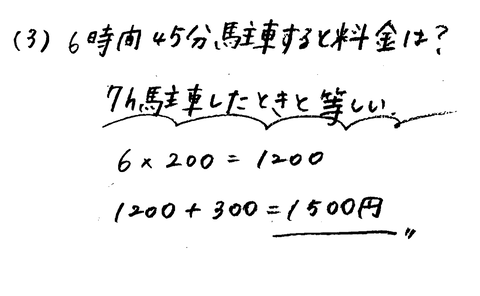 (3) 6時間45分駐車すると料金は?
7h駐車したときと等しい.
6 × 200 = 1200
1200 + 300 = 1500円